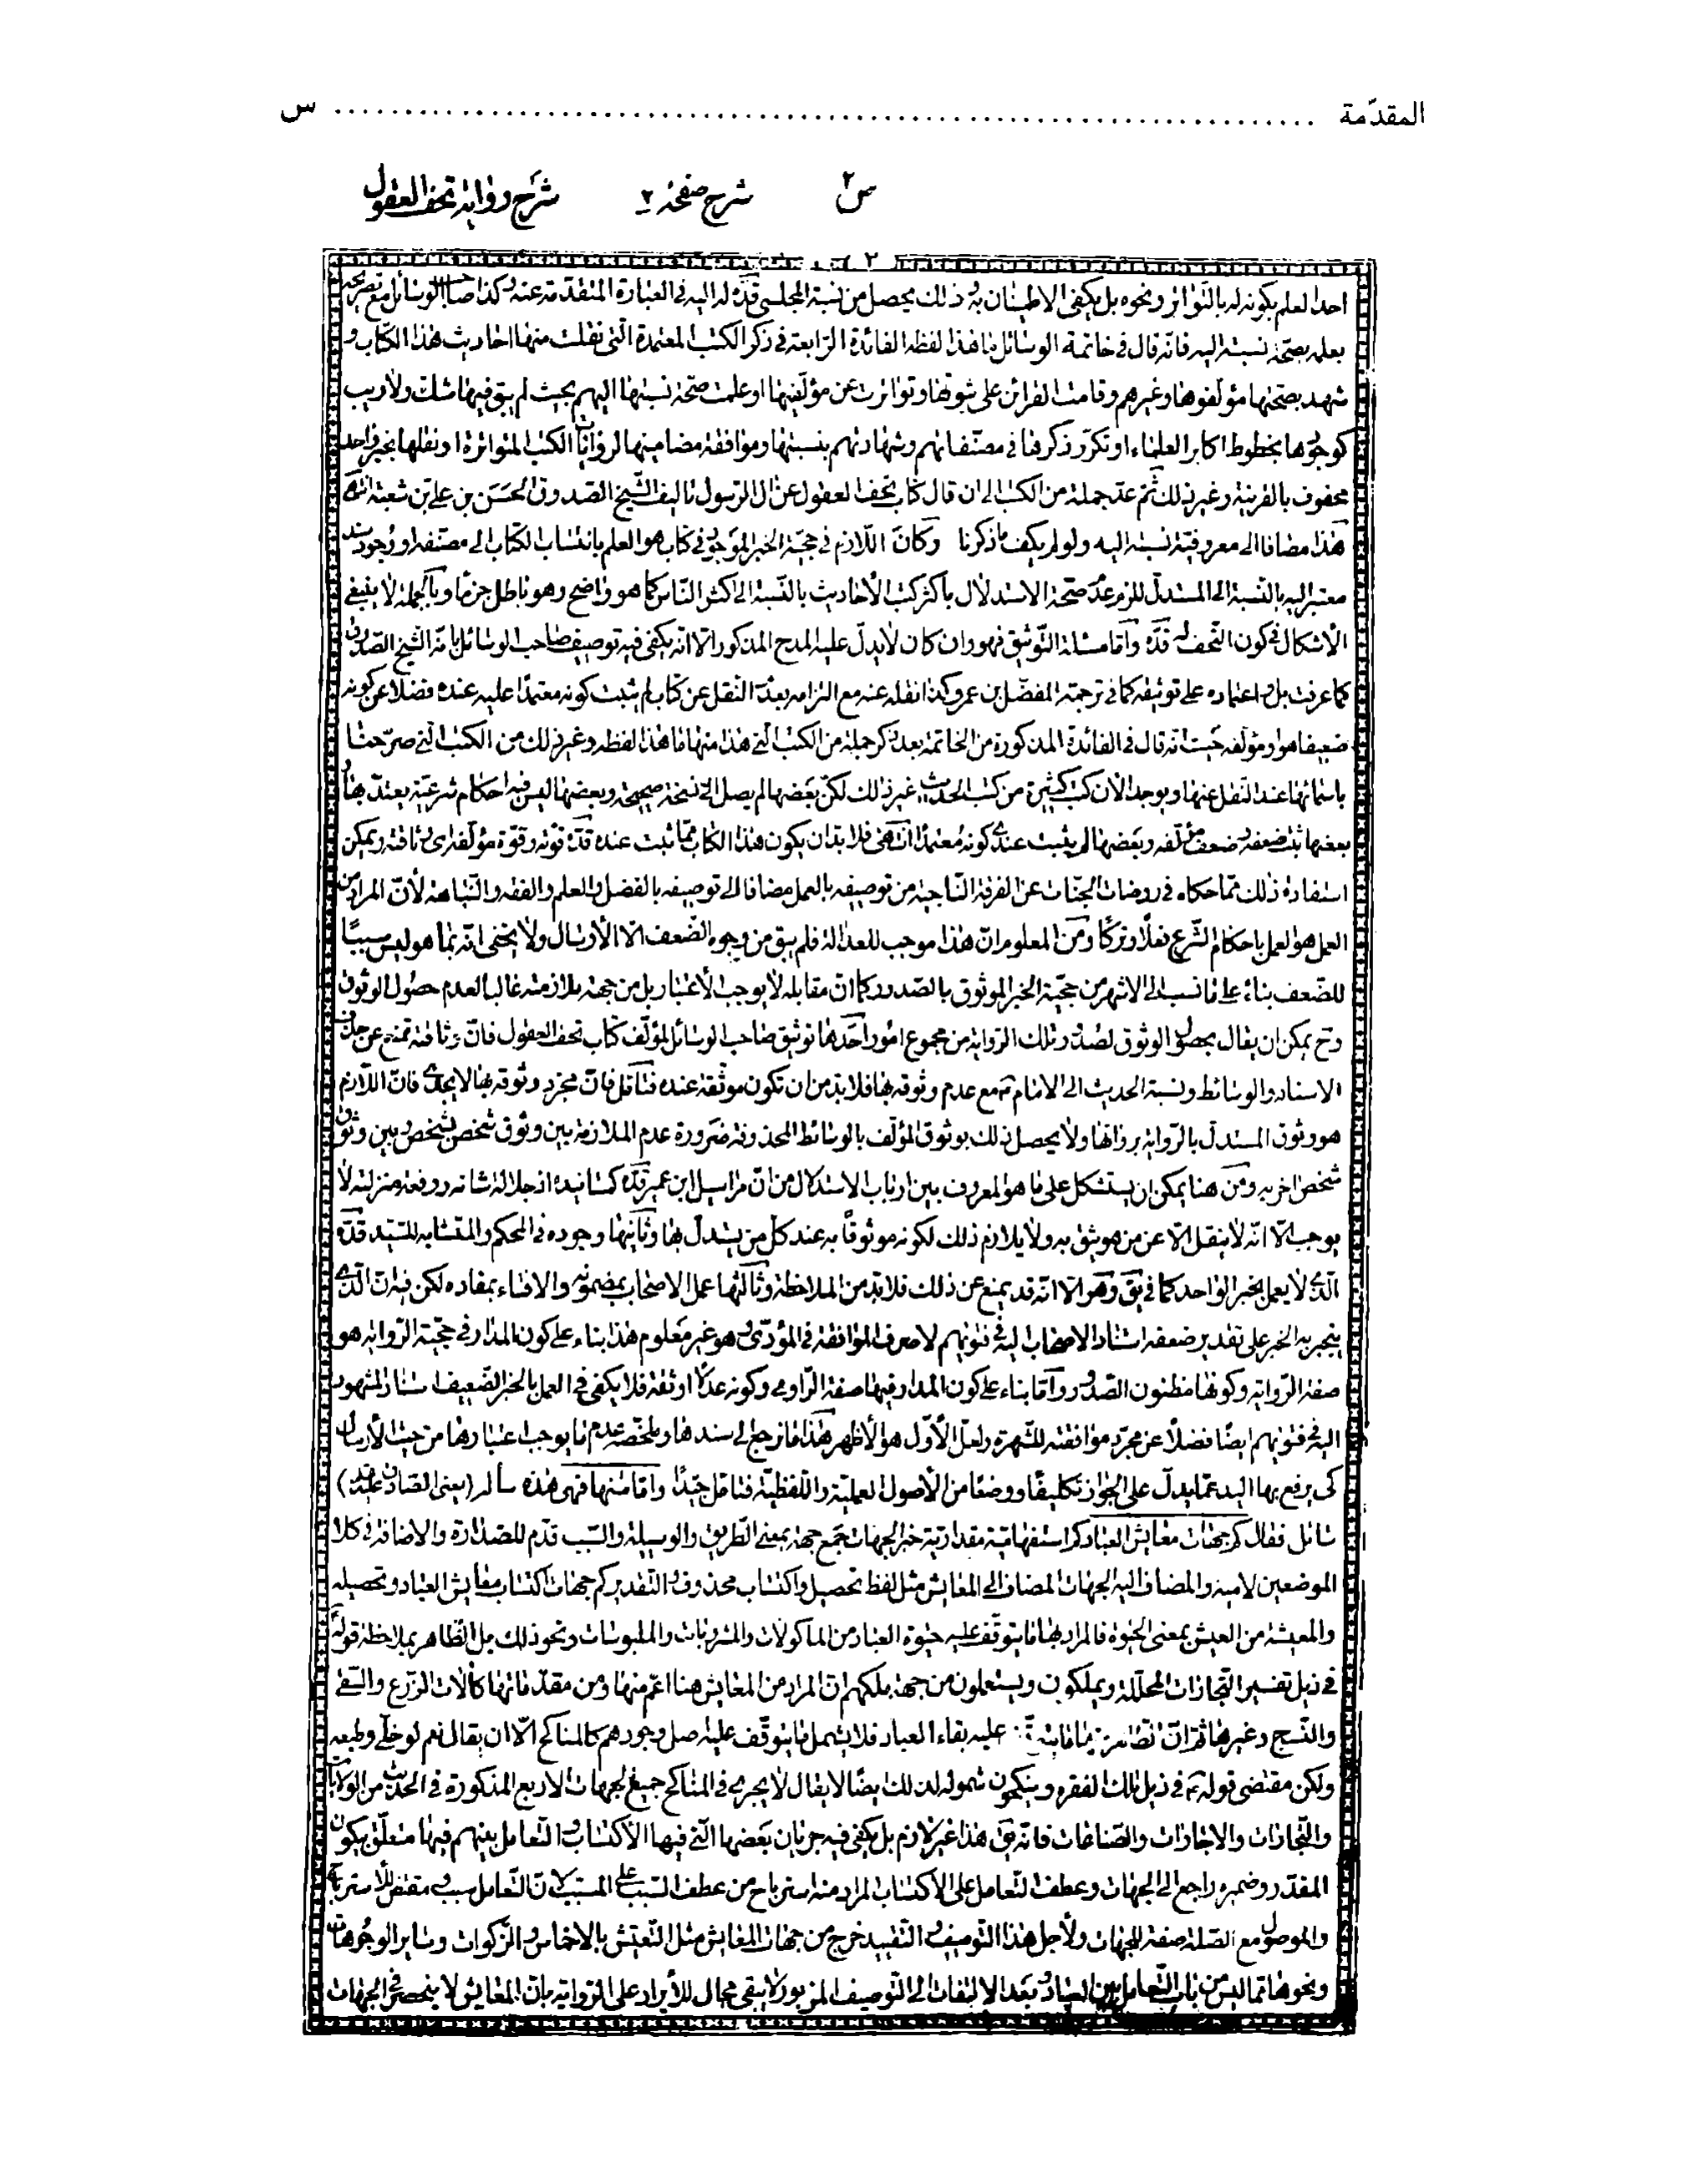 المقدّمة ........................................................ س
س٢ شرح صفحة ٢ شرح رواية تحف العقول
٢
احد العلم بكونه له بالتواتر ونحوه بل يكفى الاطمينان به وذلك يحصل من نسبة المجلسى قدّه له اليه فى العبارة المتقدمة عنه وكذا صاحب الوسائل مع تصريحه
بعلمه بصحّة نسبته اليه فانه قال فى خاتمة الوسائل ما هذا لفظه الفائدة الرّابعة فى ذكر الكتب المعتمدة الّتى نقلت منها احاديث هذا الكتاب و
شهد بصحّتها مؤلّفوها وغيرهم وقامت القرائن على ثبوتها وتواترت عن مؤلّفيها او علمت صحّة نسبتها اليهم بحيث لم يبق فيها شك ولا ريب
كوجودها بخطوط اكابر العلماء او تكرّر ذكرها فى مصنّفاتهم وشهادتهم بنسبتها وموافقة مضامينها لروايات الكتب المتواترة او نقلها بخبر واحد
محفوف بالقرينة وغير ذلك ثمّ عدّ جملة من الكتب الى ان قال كتاب تحف العقول عن ال الرسول تاليف الشّيخ الصّدوق الحسن بن على بن شعبة انتهى
هذا مضافا الى معروفيّة نسبته اليه ولو لم يكف ما ذكرنا وكان اللازم فى حجيّة الخبر الموجود فى كتاب هو العلم بانتساب الكتاب الى مصنّفه او وجود سند
معتبر اليه بالنّسبة الى المستدلّ للزم عدم صحّة الاستدلال بأكثر كتب الأحاديث بالنّسبة الى اكثر النّاس كما هو واضح وهو باطل جزما وبالجملة لا ينبغى
الأشكال فى كون التّحف له قدّه وأمّا مسئلة التّوثيق فهو وان كان لا يدلّ عليه المدح المذكور الّا انه يكفى فيه توصيف صاحب الوسائل بانّه الشّيخ الصّدوق
كما عرفت بل واعتماده على توثيقه كما فى ترجمة المفضّل بن عمر وكذا نقله عنه مع التزامه بعدم النّقل عن كتاب لم يثبت كونه معتمدا عليه عنده فضلا عن كونه
ضعيفا هو او مؤلّفه حيث انه قال فى الفائدة المذكورة من الخاتمة بعد ذكر جملة من الكتب الّتى هذا منها ما هذا لفظه وغير ذلك من الكتب الّتى صرّحنا
باسمائها عند النّقل عنها ويوجد الان كتب كثيرة من كتب الحديث غير ذلك لكن بعضها لم يصل الىّ نسخة صحيحة وبعضها ليس فيه احكام شرعيّة يعتدّ بها و
بعضها ثبت ضعفه وضعف مؤلّفه وبعضها لم يثبت عندى كونه معتمدا انتهى فلا بدّ ان يكون هذا الكتاب ممّا ثبت عنده قدّه قوّته وقوّة مؤلّفه اى وثاقته ويمكن
استفادة ذلك ممّا حكاه فى روضات الجنّات عن الفرقة النّاجية من توصيفه بالعمل مضافا الى توصيفه بالفضل والعلم والفقه والنّباهة لأنّ المراد من
العمل هو العمل باحكام الشّرع فعلا وتركا ومن المعلوم انّ هذا موجب للعدالة فلم يبق من وجوه الضّعف الّا الأرسال ولا يخفى انّه بما هو ليس سببا
للضّعف بناء على ما نسب الى الاشهر من حجيّة الخبر الموثوق بالصّدور كما انّ مقابله لا يوجب الأعتبار بل من جهة ملازمته غالبا لعدم حصول الوثوق
وح يمكن ان يقال بحصول الوثوق لصدور تلك الرّواية من مجموع امور احدها توثيق صاحب الوسائل لمؤلّف كتاب تحف العقول فانّ وثاقته تمنع عن حذف
الاسناد والوسائط ونسبة الحديث الى الامام ع مع عدم وثوقه بها فلا بدّ من ان تكون موثّقة عنده فتأمّل فانّ مجرّد وثوقه بها لا يجدى فانّ اللّازم
هو وثوق المستدلّ بالرّواية برواتها ولا يحصل ذلك بوثوق المؤلّف بالوسائط المحذوفة ضرورة عدم الملازمة بين وثوق شخص بشخص وبين وثوق
شخص اخر به ومن هنا يمكن ان يستشكل على ما هو المعروف بين ارباب الاستدلال من انّ مراسيل ابن ابى عمير قدّه كمسانيده اذ جلالة شانه ورفعة منزلته لا
يوجب الّا انّه لا ينقل الّا عن من هو يثق به ولا يلازم ذلك لكونه موثوقا به عند كل من يستدلّ بها وثانيها وجوده فى المحكم والمتشابه للسّيّد قدّه
الّذى لا يعمل بخبر الواحد كما فى يق وهو الّا انّه قد يمنع عن ذلك فلا بدّ من الملاحظة وثالثها عمل الاصحاب بمضمونه والافتاء بمفاده لكن فيه انّ الّذى
ينجبر به الخبر على تقدير ضعفه استناد الاصحاب اليه فى فتويهم لا صرف الموافقة فى المؤدّى وهو غير معلوم هذا بناء على كون المدار فى حجيّة الرّواية هو
صفة الرّواية وكونها مظنون الصّدور وامّا بناء على كون المدار فيها صفة الرّاوى وكونه عدلا او ثقة فلا يكفى فى العمل بالخبر الضّعيف استناد المشهور
اليه فى فتويهم ايضا فضلا عن مجرّد موافقته للشّهرة ولعلّ الأوّل هو الأظهر هذا ما يرجع الى سندها وملخّصه عدم ما يوجب اعتبارها من حيث الأرسال
كى يرفع بها اليد عمّا يدلّ على الجواز تكليفا ووضعا من الأصول العمليّة واللّفظيّة فتأمّل جيّدا وامّا متنها فهى هذه سأله (يعنى الصّادق ع)
سائل فقال كم جهات معايش العباد كم استفهاميّة مقداريّة خبر الجهات جمع جهة بمعنى الطّريق والوسيلة والسّبب قدّم للصّدارة والاضافة فى كلا
الموضعين لامية والمضاف اليه الجهات المضاف الى المعايش مثل لفظ تحصيل واكتساب محذوف والتقدير كم جهات اكتساب معايش العباد وتحصيله
والمعيشة من العيش بمعنى الحيوة فالمراد بها ما يتوقّف عليه حيوة العباد من المأكولات والمشروبات والملبوسات ونحو ذلك بل الظّاهر بملاحظة قوله
فى ذيل تفسير التّجارات المحلّلة ويملكون ويستعملون من جهة ملكهم انّ المراد من المعايش هنا اعمّ منها ومن مقدّماتها كآلات الزّرع والسّقى
والنّسج وغيرها ثم انّ عليه بقاء العباد فلا يشمل ما يتوقّف عليه اصل وجودهم كالمناكح الّا ان يقال نعم لو خلّى وطبعه
ولكن مقتضى قوله ع فى ذيل تلك الفقرة وينكحون شموله لذلك ايضا لا يقال لا يجرى فى المناكح جميع الجهات الأربع المذكورة فى الحديث من الولايات
والتّجارات والاجارات والصّناعات فانّه يق هذا غير لازم بل يكفى فيه جريان بعضها الّتى فيها الاكتساب والتّعامل بينهم فيها متعلّق بيكون
المقدّر وضميره راجع الى الجهات وعطف التّعامل على الأكتساب المراد منه استرباح من عطف السّبب على المسبّب لانّ التّعامل سبب ومقتض للأسترباح
والموصول مع الصّلة صفة للجهات ولأجل هذا التّوصيف والتّقييد خرج من جهات المعايش مثل التّعيّش بالاخماس والزّكوات وساير الوجوهات
ونحوها ممّا ليس من باب التّعامل بين العباد وبعد الالتفات الى التّوصيف المزبور لا يبقى مجال للأيراد على الرّواية بانّ المعايش لا ينحصر فى الجهات